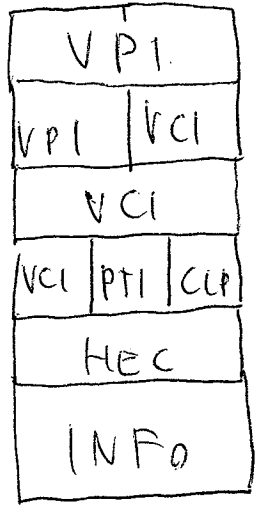 VPI
VPI VCI
VCI
VCI PTI CLP
HEC
INFO